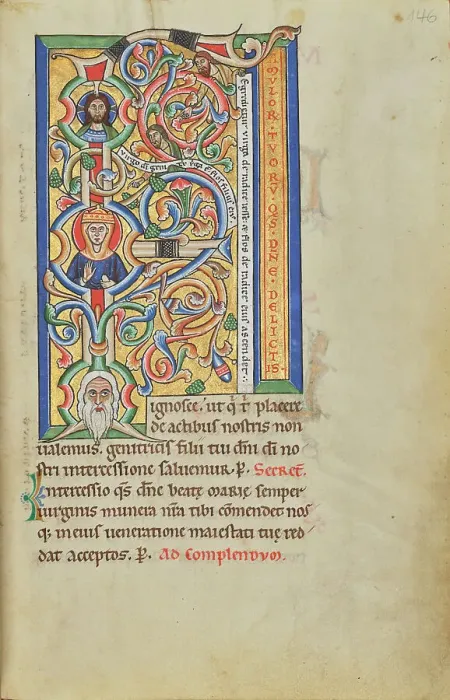 146
AMULOR TVORV. QS. DNE. DELICTIS.
Egredietur virga de radice iesse & flos de radice eius ascendet.
virgo di genit virga e flos filius ei
ignosce. ut q t placere
de actibus nostris non
ualemus. genitricis filii tui dni di no
stri intercessione saluemur. P. Secret.
Intercessio qs dne beate marie semper
uirginis munera nra tibi comendet nos
q; in eius ueneratione maiestati tue red
dat acceptos. P. Ad complendum.